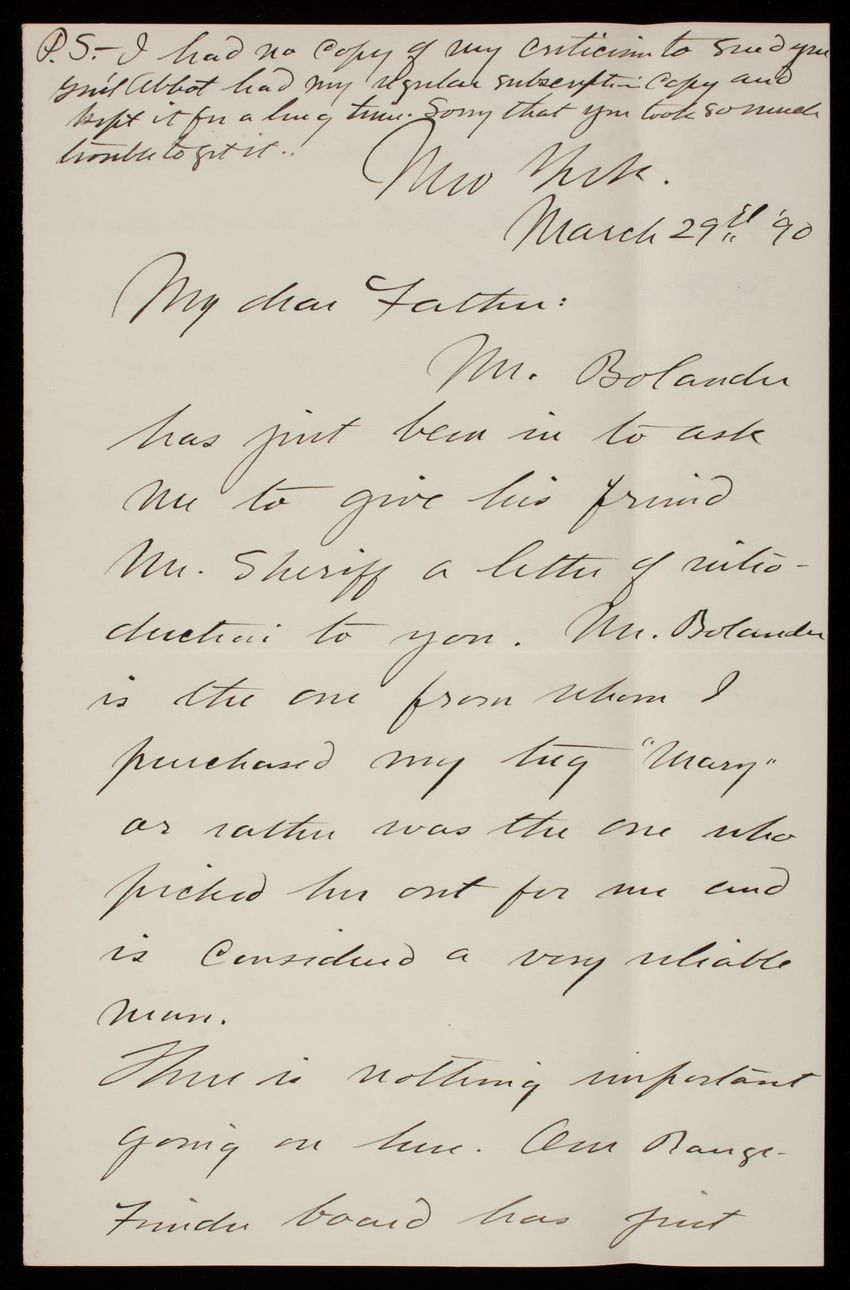 P.S.- I had no copy of my criticism to send you
Gen'l Abbot had my regular subscription copy and
kept it for a long time. Sorry that you took so much
trouble to get it..
New York.
March 29th '90
My dear Father:
Mr. Bolander
has just been in to ask
me to give his friend
Mr. Sheriff a letter of intro-
duction to you. Mr. Bolander
is the one from whom I
purchased my tug "Mary"
or rather was the one who
picked her out for me and
is considered a very reliable
man.
There is nothing important
going on here. Our Range-
Finder board has just